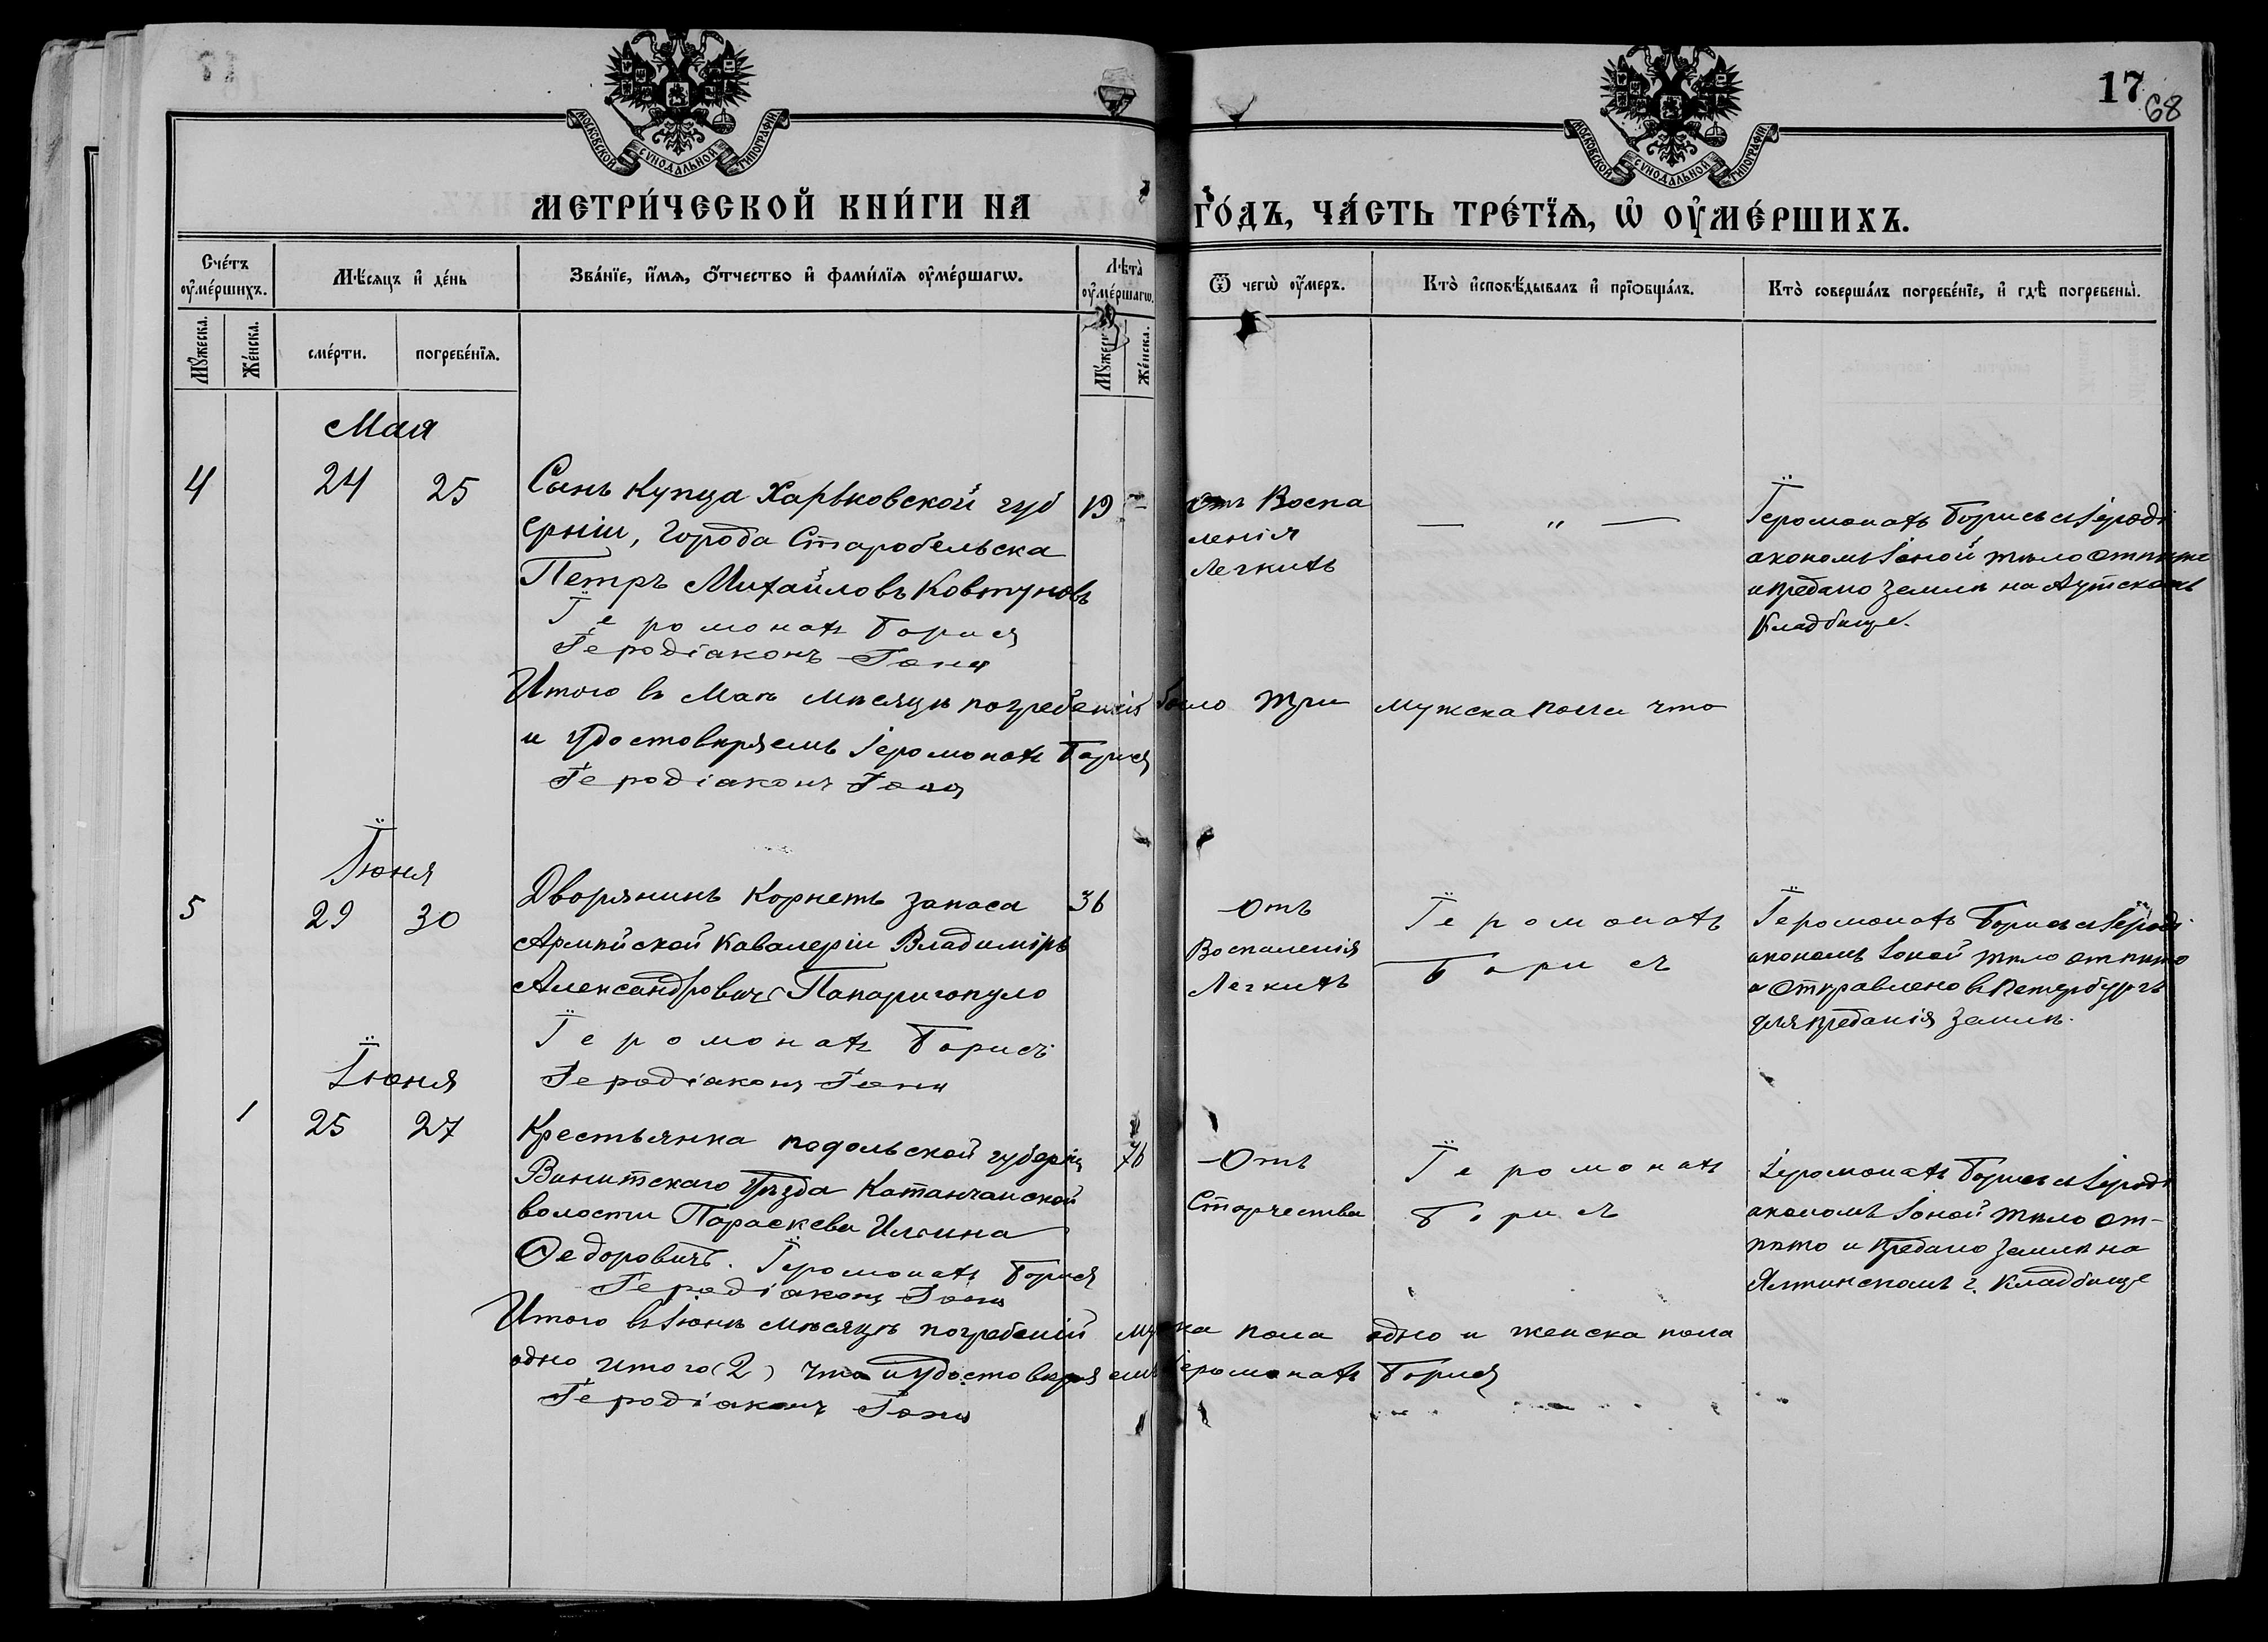 17
68
МОСКОВСКОЙ СѴНОДАЛЬНОЙ ТИПОГРАФІИ
МОСКОВСКОЙ СѴНОДАЛЬНОЙ ТИПОГРАФІИ
МЕТРИ́ЧЕСКОЙ КНИ́ГИ НА ГО́ДЪ, ЧА́СТЬ ТРЕ́ТЇѦ, Ѡ҆ ОУ҆МЕ́РШИХЪ.
Сче́тъ оу҆ме́ршихъ.
Мѣ́сяцъ и҆ де́нь
Зва́нїе, и҆́мѧ, ѻ҆́тчество и҆ фами́лїѧ оу҆ме́ршагѡ.
Лѣта̀ оу҆ме́ршагѡ.
Ѿ чегѡ̀ оу҆́меръ.
Кто̀ и҆сповѣ́дывалъ и҆ прїѡбща́лъ.
Кто̀ соверша́лъ погребе́нїе, и҆ гдѣ̀ погребены̀.
Мꙋ́жеска.
Же́нска.
сме́рти.
погребе́нїѧ.
Мꙋ́жеска.
Же́нска.
Мая
4 24 25
Сынъ купца Харьковской губ
ерніи, города Старобельска
Петръ Михайловъ Ковтуновъ
Іеромонахъ Борисъ
Іеродіаконъ Іона
19 —
отъ Воспа
ленія
Легкихъ
— „ —
Іеромонахъ Борисъ и Іероді
акономъ Іоной тѣло отпето
и предано земли на Аутскомъ
Кладбище.
Итого въ Маѣ мѣсяцѣ погребеній было три мужска пола что
и удостовѣряемъ Іеромонахъ Борисъ
Іеродіаконъ Іона
Іюня
5 29 30
Дворянинъ Корнетъ запаса
Армейской Кавалеріи Владиміръ
Александровичъ Папаригопуло
Іеромонахъ Борисъ
Іеродіаконъ Іона
36
Отъ
Воспаленія
Легкихъ
Іеромонахъ
Борисъ
Іеромонахъ Борисъ и Іероді
акономъ Іоной тѣло отпето
и отправлено въ Петербургъ
для преданія земли.
Іюня
1 25 27
Крестьянка подольской губерніи
Винитскаго Уѣзда
волости Параскева Ильина
Ѳедоровичъ. Іеромонахъ Борисъ
Іеродіаконъ Іона
76
Отъ
Старчества
Іеромонахъ
Борисъ
Іеромонахъ Борисъ и Іероді
акономъ Іоной тѣло от-
пето и предано земли на
Ялтинскомъ г. Кладбище
Итого въ Іюнѣ мѣсяцѣ погребеній муска пола одно и женска пола
одно итого (2) что и удостовѣряемъ Іеромонахъ Борисъ
Іеродіаконъ Іона